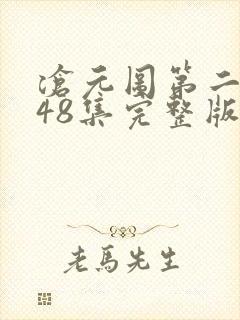 滄元图第二
48集完整版
老馬先生